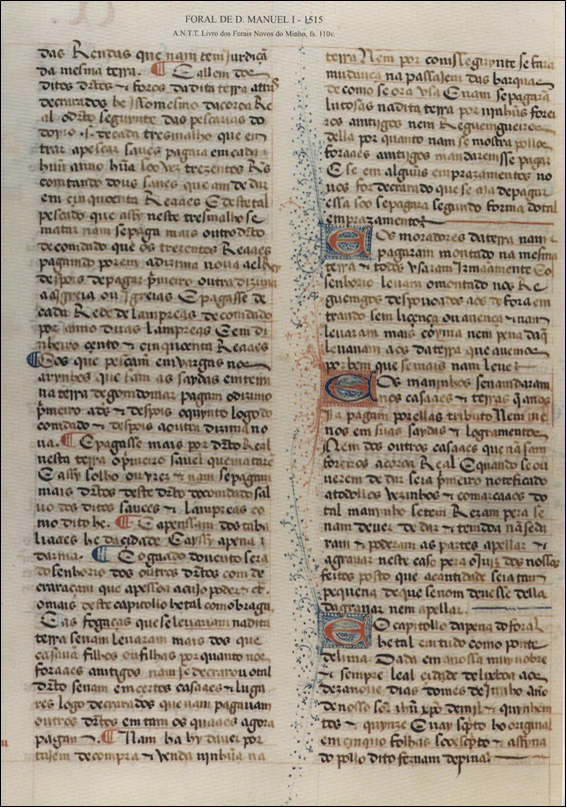 FORAL DE D. MANUEL I - 1515
A.N.T.T. Livro dos Forais Novos do Minho, fs. 110v.
das Rendas que nam tem jurdiçã
da mesma terra. E alem dos
ditos dr̃tos & foros da dita terra
decrarados he isso mesmo da coroa Re
al o dr̃to seguynte das pescarias do
doyro .s. de cada tresmalho que en
trar a pescar saves pagua em cada
huũ anno hũa soo vez trezentos Rs̃
comtando dous saves que am de dar
em cinquoenta Reaaes E deste tal
pescado que assy neste tresmalho se
matar nam se pagua mais outro dr̃to
de comdado que os trezentos Reaaes
pagando porem a dizima nova a el Rey
despois de pagar primeiro outra dizima
aa Igreia ou Igreias E pagasse de
cada Rede de lampreas de comdado
por anno duas lampreas E em di
nheiro cento & cinquoenta Reaaes
E os que pescam em vargas nos
arynhos que tem as saydas em terra
na terra de gomdomar pagam o dizimo
primeiro a ds̃ & despois o quynto logo do
comdado & despois a outra dizima no
va. E pagasse mais por dr̃to Real
nesta terra o primeiro savel que matarẽ
E assy solho ou yrez & nam se pagam
mais dr̃tos deste dr̃to do comdado sal
vo dos ditos saves & lampreas co
mo dito he. E a penssam dos taba
liaaes he da cidade E assy a pena d
darma. E o gado do vento sera
do senhorio dos outros dr̃tos com de
craraçam que a pessoa a cujo poder &c.
o mais deste capitollo he tal como bragua
E as fogaças que se levavam na dita
terra se nam levaram mais dos que
casavã filhos ou filhas por quanto nos
foraaes amtigos nam he decrarado tal
dr̃to se nam em certos casaaes & luga
res logo decrarados que nam pagavam
outros dr̃tos em tam os quaaes agora
pagam &. Nam ha hy daver por
tajem de compra & venda ninhũa na
terra Nem por comseguynte se fara
mudança na passajem das barquas
de como se ora usa E nam se pagara
lutosas na dita terra por ninhuũs forei
ros amtigos nem Regueengueiros
della por quanto nam se mostra pollos
foraaes amtijgos mandarem sse pagar
E se em alguũs emprazamentos no
vos for decrarado que se aja de pagar
essa soo se pagara segundo forma do tal
emprazamento
E Os moradores da terra nam
pagaram montado na mesma
terra & todos usaram Irmaamente E o
senhorio levara o montado nos Re
guemgos despovoados aos de fora en
trando sem licença ou avença & nam
levaram mais coyma nem pena da q̃
levavam aos da terra que avemos
por bem que se mais nam leve
E Os manynhos se nam daram
nos casaaes & terras q̃ a nos
ja pagam por ellas tributo Nem me
nos em suas saydas & logramentos
Nem dos outros casaaes que nã sam
foreiros a coroa Real E quando se ou
verem de dar seja primeiro notificado
a todollos vezinhos & comarcaaos do
tal manynho se tem Rezam pera se
nam dever de dar & tem do a nã se da
ram & poderam as partes apellar &
agravar neste caso pera o Juiz dos nossos
feitos posto que a cantidade seja tam
pequena de que se nom devesse della
dagravar nem apellar
E O capitollo da pena do foral
he tal em tudo como ponte
de lima. Dada em a nossa muy nobre
& sempre leal cidade de lixboa aos
dezanove dias do mes de Junho ãno
de nosso sor̃ Jhuũ xp̃o de mil & quynhem
tos & quynze E vay scpto ho original
em cinquo folhas
do pollo dito fernam de pina